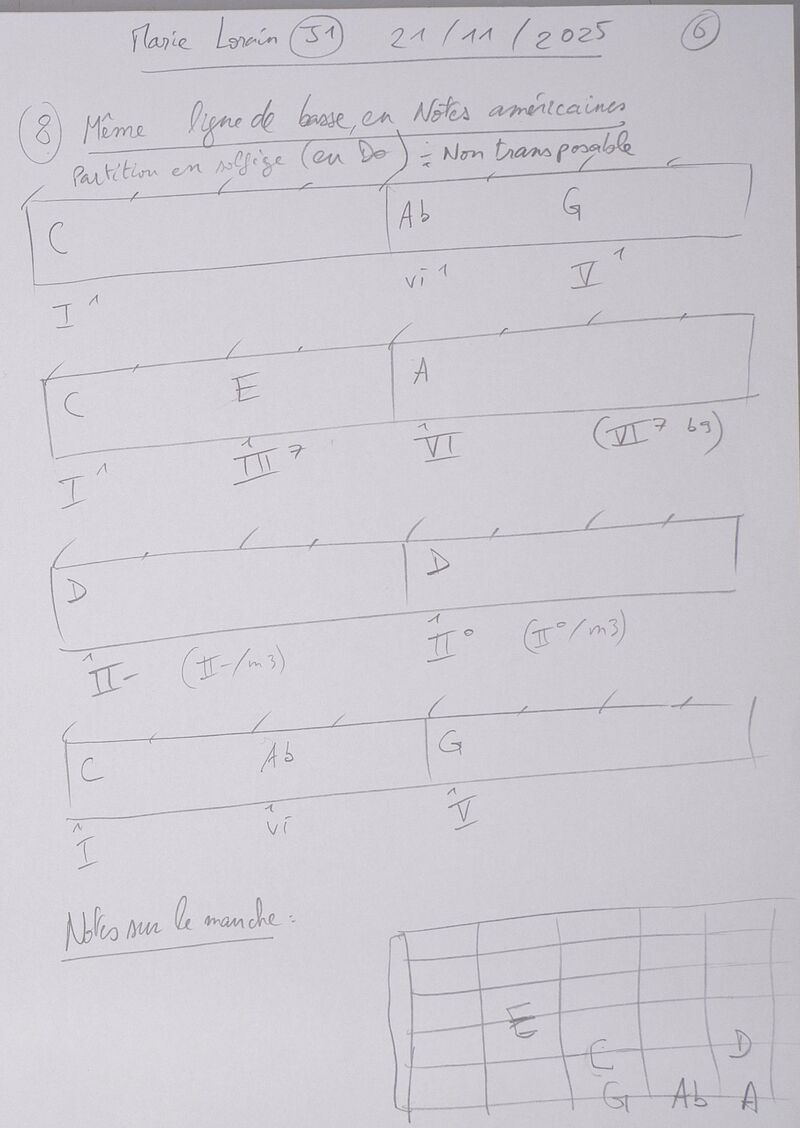 Marie Lorain J1 21/11/2025 6
8 Même ligne de basse, en Notes américaines
Partition en solfège (en Do) = Non transposable
C Ab G
I 1 vi 1 V 1
C E A
I 1 1 III 7 1 VI (VI 7 b9)
D D
1 II- (II-/m3) 1 II° (II°/m3)
C Ab G
1 I 1 vi 1 V
Notes sur le manche :
E
C D
G Ab A